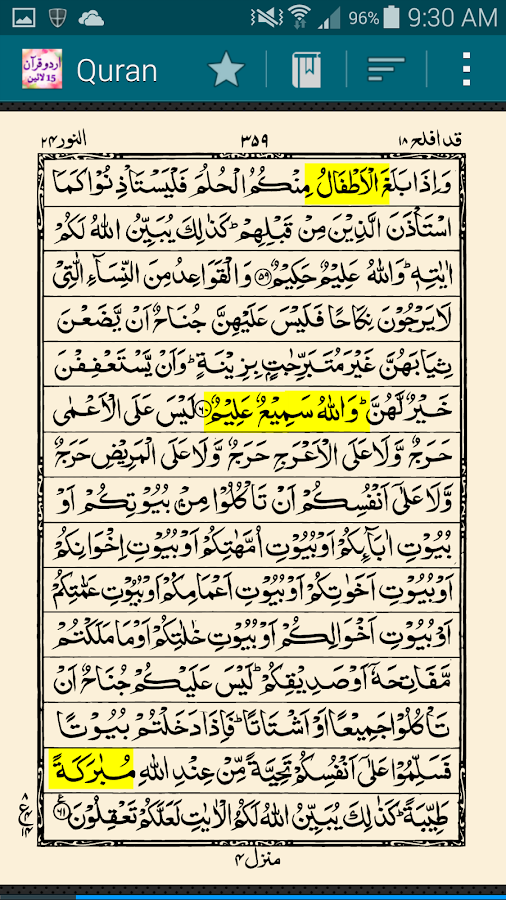 96% 9:30 AM
اردو قرآن
15 لائین
Quran
قد افلح ۱۸
۳۵۹
النور ۲۴
وَاِذَا بَلَغَ الْاَطْفَالُ مِنْكُمُ الْحُلُمَ فَلْيَسْتَاْذِنُوْا كَمَا
اسْتَاْذَنَ الَّذِيْنَ مِنْ قَبْلِهِمْ ؕ كَذٰلِكَ يُبَيِّنُ اللّٰهُ لَكُمْ
اٰيٰتِهٖ ؕ وَاللّٰهُ عَلِيْمٌ حَكِيْمٌ ۵۹ وَالْقَوَاعِدُ مِنَ النِّسَآءِ الّٰتِيْ
لَا يَرْجُوْنَ نِكَاحًا فَلَيْسَ عَلَيْهِنَّ جُنَاحٌ اَنْ يَّضَعْنَ
ثِيَابَهُنَّ غَيْرَ مُتَبَرِّجٰتٍۭ بِزِيْنَةٍ ؕ وَاَنْ يَّسْتَعْفِفْنَ
خَيْرٌ لَّهُنَّ ؕ وَاللّٰهُ سَمِيْعٌ عَلِيْمٌ ۶۰ لَيْسَ عَلَى الْاَعْمٰى
حَرَجٌ وَّلَا عَلَى الْاَعْرَجِ حَرَجٌ وَّلَا عَلَى الْمَرِيْضِ حَرَجٌ
وَّلَا عَلٰٓى اَنْفُسِكُمْ اَنْ تَاْكُلُوْا مِنْۢ بُيُوْتِكُمْ اَوْ
بُيُوْتِ اٰبَآئِكُمْ اَوْ بُيُوْتِ اُمَّهٰتِكُمْ اَوْ بُيُوْتِ اِخْوَانِكُمْ
اَوْ بُيُوْتِ اَخَوٰتِكُمْ اَوْ بُيُوْتِ اَعْمَامِكُمْ اَوْ بُيُوْتِ عَمّٰتِكُمْ
اَوْ بُيُوْتِ اَخْوَالِكُمْ اَوْ بُيُوْتِ خٰلٰتِكُمْ اَوْ مَا مَلَكْتُمْ
مَّفَاتِحَهٗٓ اَوْ صَدِيْقِكُمْ ؕ لَيْسَ عَلَيْكُمْ جُنَاحٌ اَنْ
تَاْكُلُوْا جَمِيْعًا اَوْ اَشْتَاتًا ؕ فَاِذَا دَخَلْتُمْ بُيُوْتًا
فَسَلِّمُوْا عَلٰٓى اَنْفُسِكُمْ تَحِيَّةً مِّنْ عِنْدِ اللّٰهِ مُبٰرَكَةً
طَيِّبَةً ؕ كَذٰلِكَ يُبَيِّنُ اللّٰهُ لَكُمُ الْاٰيٰتِ لَعَلَّكُمْ تَعْقِلُوْنَ ۶۱
۸
ع
۴
۱۴
منزل ۴